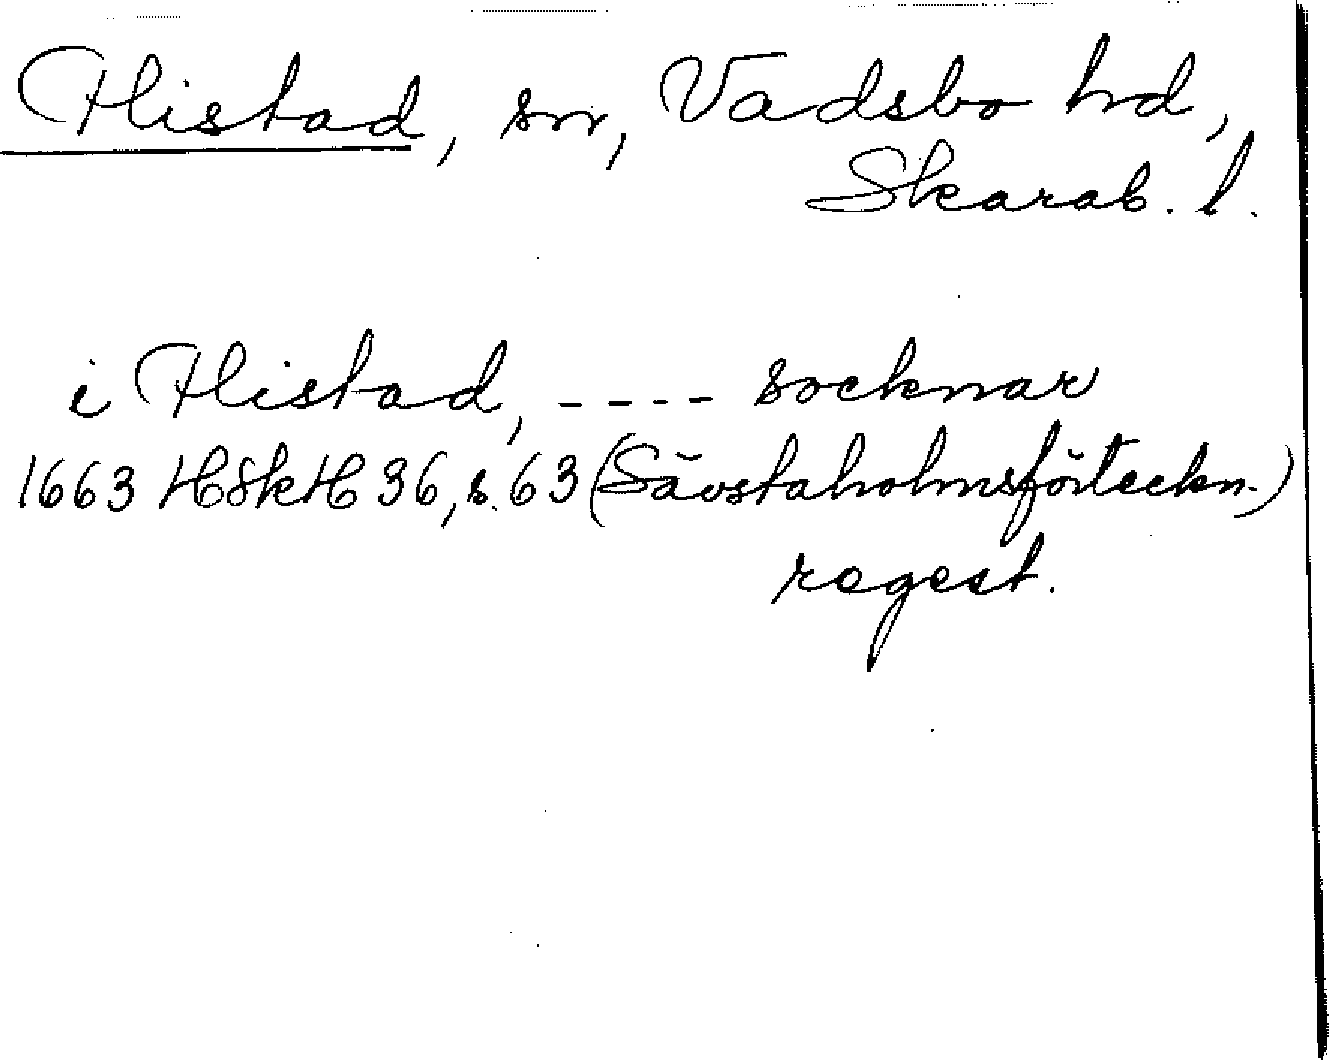 Flistad, sn, Vadsbo hd,
Skarab. l.
i Flistad, ---- socknar
1663 HSkH 36, s. 63 (Sävstaholmsförteckn.)
regest.